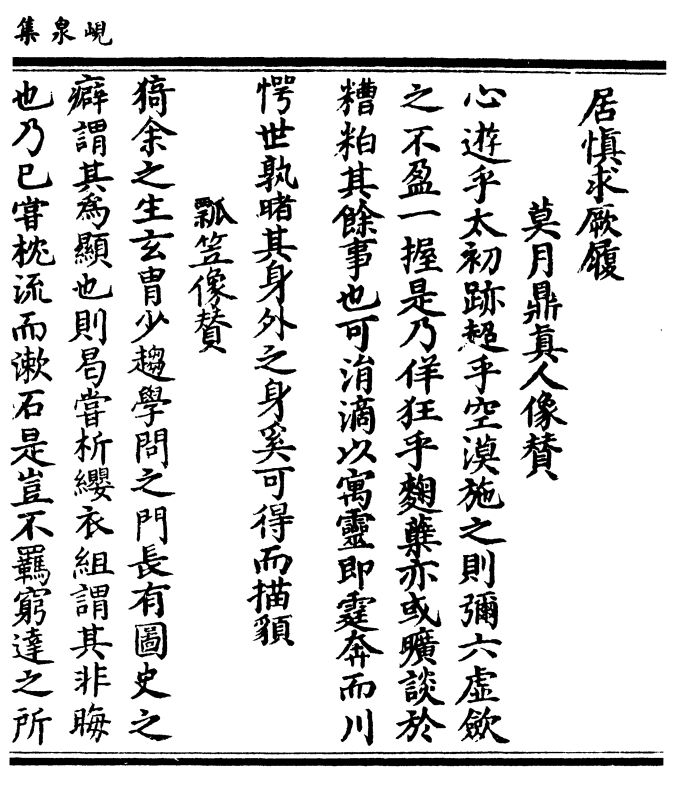 峴泉集
居慎求厥履
莫月鼎真人像賛
心遊乎太初跡超乎空漠施之則彌六虛歛
之不盈一握是乃佯狂乎麴蘖亦或曠談於
糟粕其餘事也可涓滴以寓靈即霆奔而川
愕世孰睹其身外之身奚可得而描貌
瓢笠像賛
猗余之生玄胄少趨學問之門長有圖史之
癖謂其為顯也則曷嘗析纓衣組謂其非晦
也乃已甞枕流而漱石是豈不羈窮達之所